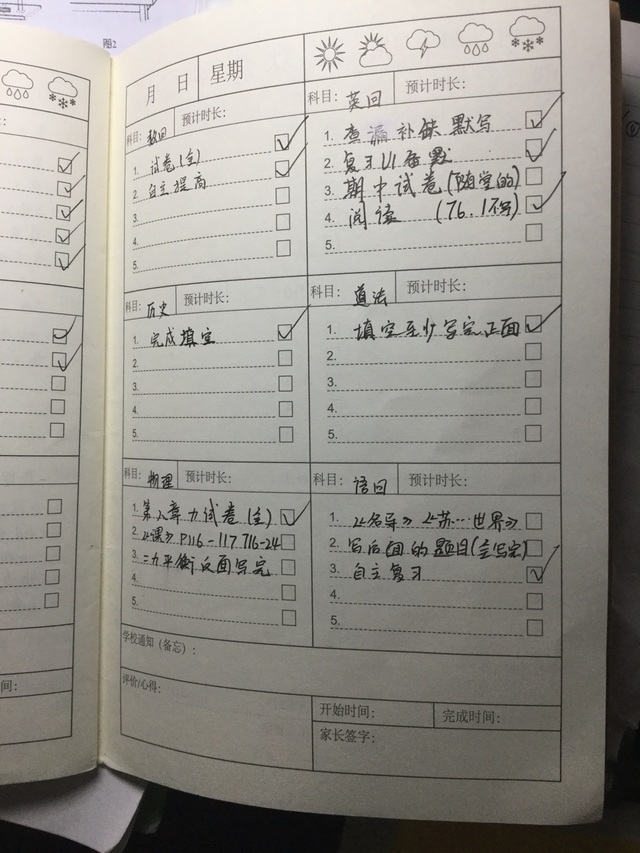 图2
月 日 星期
科目: 数 预计时长:
1. 试卷(全)
2. 自主提高
3.
4.
5.
科目: 英 预计时长:
1. 查漏补缺 默写
2. 复习U1 默
3. 期中试卷(随堂的)
4. 阅读 (76.1不写)
5.
科目: 历史 预计时长:
1. 完成填空
2.
3.
4.
5.
科目: 道法 预计时长:
1. 填空至少写完正面
2.
3.
4.
5.
科目: 物理 预计时长:
1. 第八章力试卷(全)
2. 《课》P116-117 T16-24
3. 二力平衡反面写完
4.
5.
科目: 语 预计时长:
1. 《名导》《苏…世界》
2. 写后面的题目(全写完)
3. 自主复习
4.
5.
学校通知(备忘):
评价/心得:
开始时间: 完成时间:
家长签字:
间: